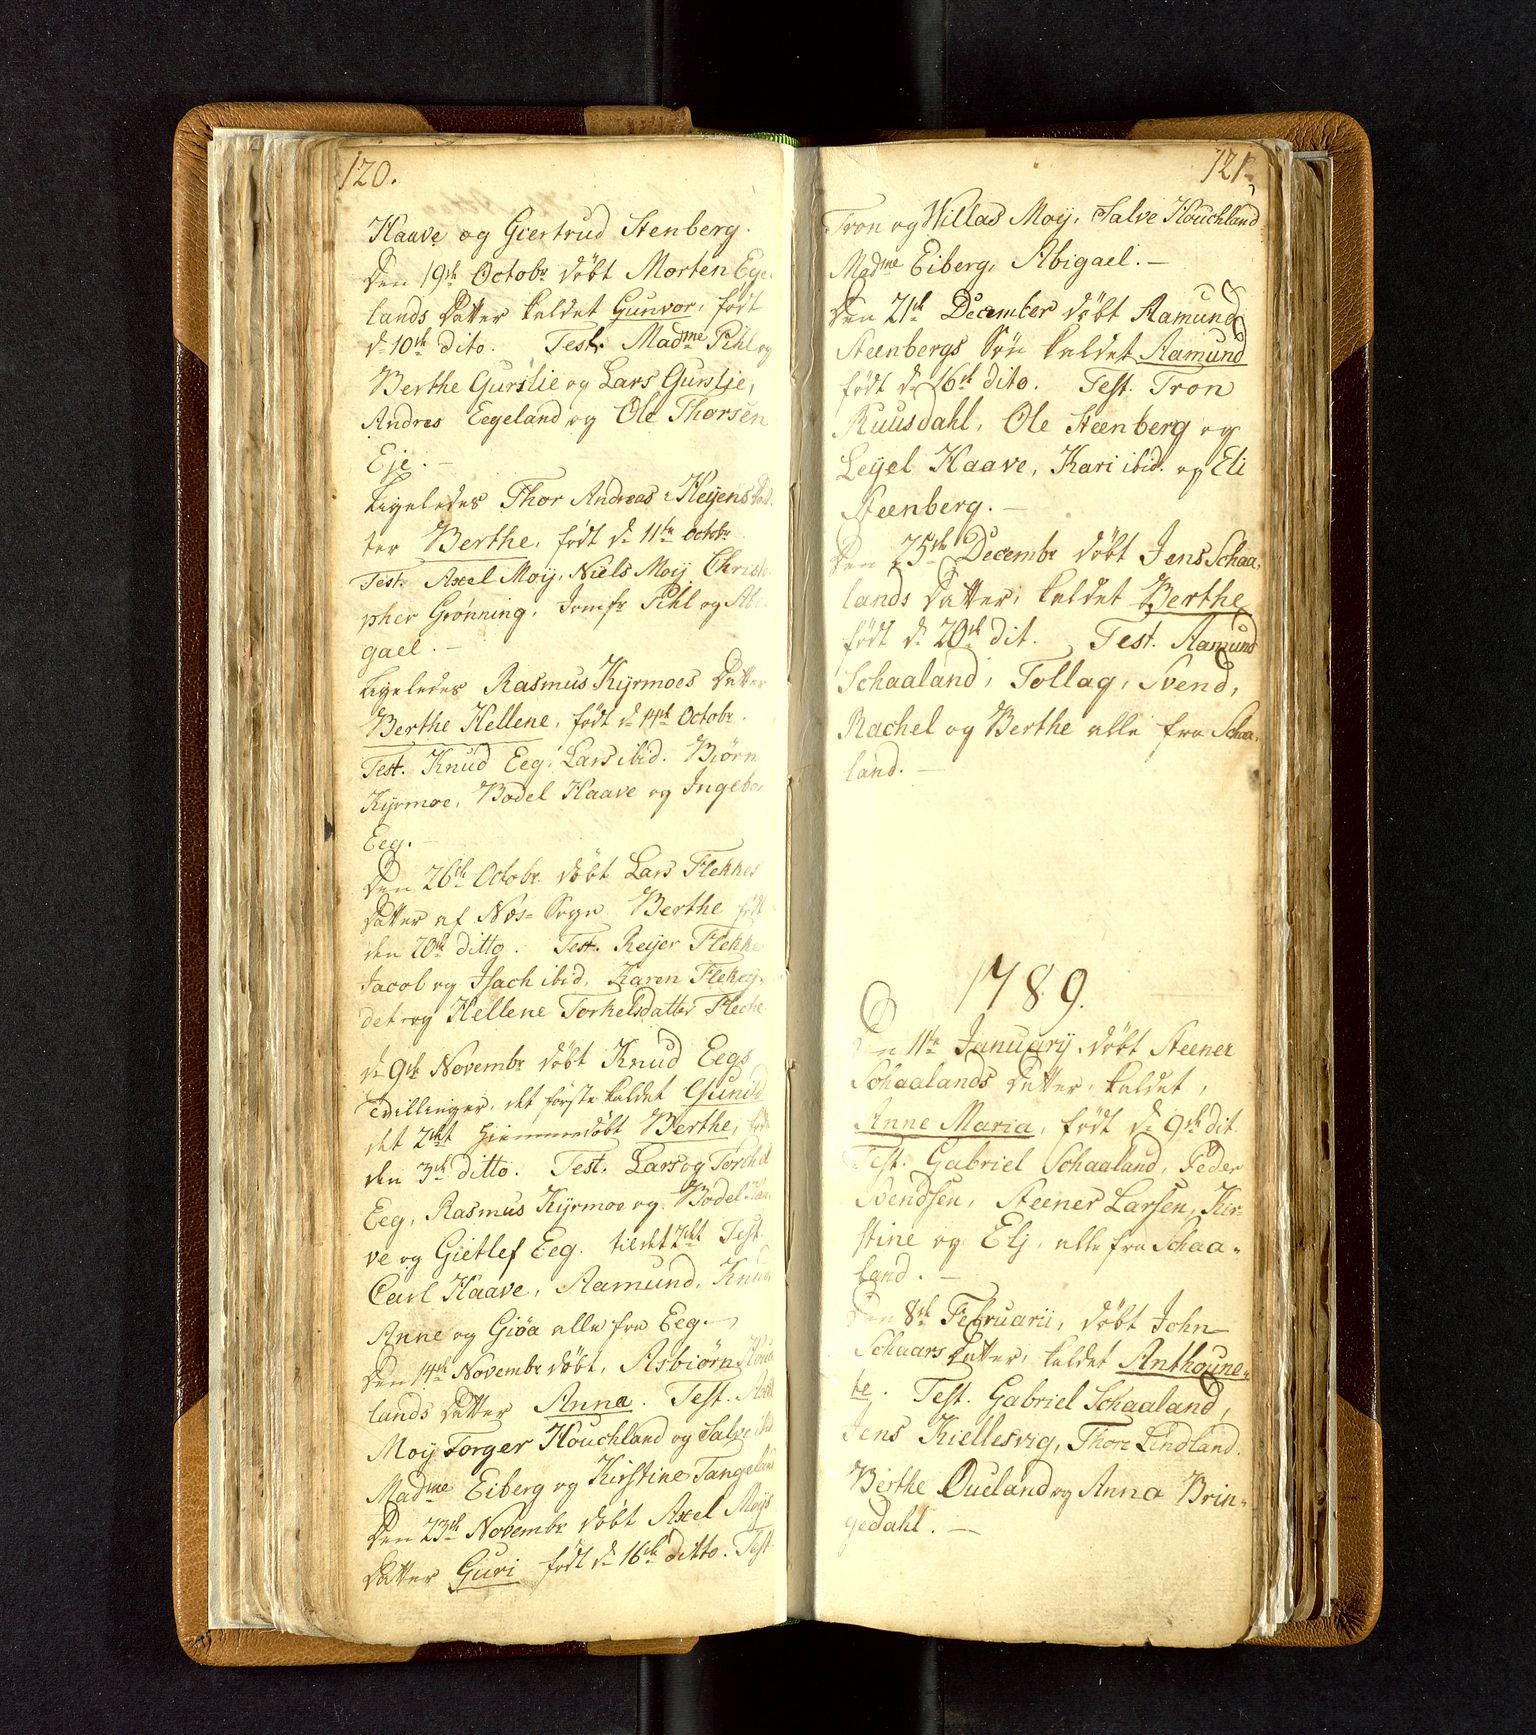 120.
Haave og Giertrud Stenberg.
Den 19de Octobr døbt Morten Ege
lands Datter kaldet Gunvor, født
d. 10de dito. Test. Madme Pihl og
Berthe Gurslie og Lars Gurslie,
Andres Eegeland og Ole Thorsen
Eje. -
Ligeledes Thor Andreas: Heyens Dat
ter Berthe, født d. 11te Octobr.
Test. Axel Moÿ, Niels Moÿ Christ
pher Grønning, Jomfr Pihl og Abi
gael. -
Ligeledes Rasmus Kÿrmoes Datter
Berthe Hellene, født d. 14de Octobr.
Test. Knud Eeg, Lars ibid. Biørn
Kÿrmoe, Bodel Haave og Ingebor
Eeg. -
Den 26de Octobr døbt Lars Flekkes
Datter af Næs-Sogn Berthe født
den 20de ditto. Test. Reÿer Flekke
Jacob og Isach ibid. Karen Flekøÿ-
det og Hellene Torkelsdatter Flecke
d. 9de Novembr døbt Knud Eegs
Tvillinger, det første kaldet Gunild
det 2det hiemmedøbt Berthe, født
den 3de ditto. Test. Lars og Torchel
Eeg, Rasmus Kÿrmoe og Bodel Haa-
ve og Gietlef Eeg. til det 2det Test.
Carl Haave, Aamund, Knud
Anne og Giøa alle fra Eeg. -
Den 14de Novembr døbt, Asbiørn Houch
lands Datter Anna. Test. Axel
Moÿ Torger Houchland og Salve ibid
Madme Eiberg og Kirstine Tangeland
Den 23de Novembr døbt Axel Moÿs
Datter Guri født d. 16de ditto. Test
121.
Tron og Willas Moÿ, Salve Houchland
Madme Eiberg, Abigael. -
Den 21de December døbt Aamund
Steenbergs Søn kaldet Aamund
født d. 16de dito. Test. Tron
Ruusdahl, Ole Steenberg og
Leÿel Haave, Kari ibid. og Eli
Steenberg. -
Den 25de Decembr døbt Jens Schaa,
lands Datter, kaldet Berthe
født d. 20de dit. Test. Aamund
Schaaland, Tollag, Svend,
Rachel og Berthe alle fra Schaa,
land. -
1789.
Den 11te Januarÿ, døbt Steener
Schaalands Datter, kaldet,
Anne Maria, født d. 9de dit.
Test. Gabriel Schaaland, Peder
Svendsen, Steener Larsen, Kir-
stine og Elj, alle fra Schaa-
land. -
Den 8de Februarii, døbt John
Schaars Datter, kaldet Anthoune-
te. Test. Gabriel Schaaland,
Jens Kiellesvig, Thore Lindland.
Berthe Dueland og Anna Brin-
gedahl. -